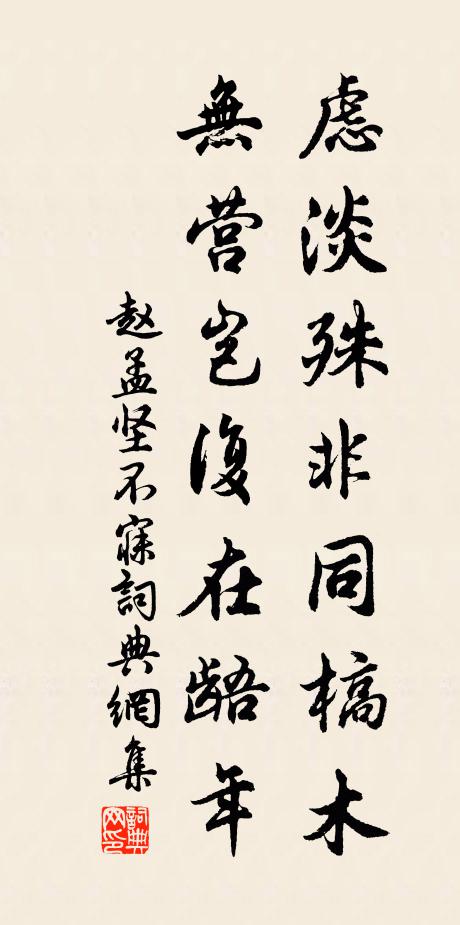 慮淡殊非同槁木
無营岂復在齬年
赵孟坚不寐詞典網集
詞典
网印